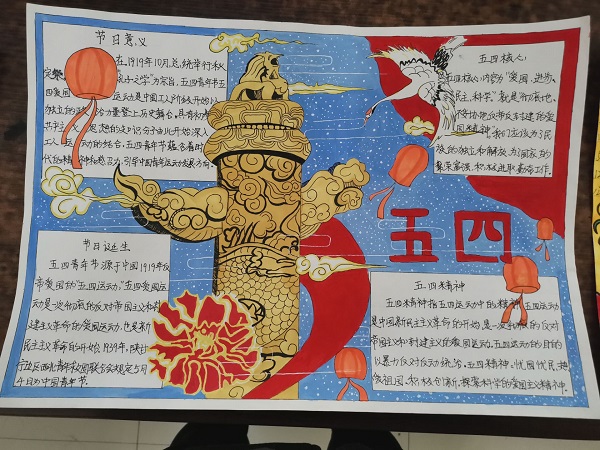 节日意义
在1919年10月
为宗旨,五四青年节五
四爱国
运动是中国工人阶级开始以
独立的政治力量登上历史舞台
想的知识分子由此开始深入
工人运动的结合,五四青年节蕴含着时
代的精神,引导中国青年运动发展方向
五四核心
五四核心内容为"爱国、进步、
民主、科学"
反帝反封建的爱
国精神,我们应该为民
族的独立和解放、为国家的
繁荣富强、积极进取奋斗
五四
节日诞生
五四青年节源于中国1919年反
帝爱国的"五四运动",五四爱国运
动是一次彻底的反对帝国主义和封
建主义革命的爱国运动,也是新
民主主义革命的开始,1939年,陕甘
宁边区西北青年救国联合会规定5月
4日为中国青年节
五四精神
五四精神指五四运动中的精神,五四运动
是中国新民主主义革命的开始,是一次彻底的反对
帝国主义和封建主义的爱国运动,五四运动的目的
以暴力反对反动统治。五四精神:忧国忧民,热
爱祖国,积极创新,探索科学的爱国主义精神。